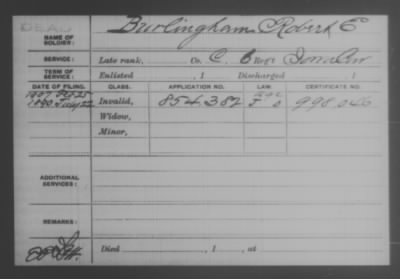 DEAD
NAME OF SOLDIER: Burlingham Robert E
SERVICE: Late rank, Co. C, 6 Reg't Iowa Cav
TERM OF SERVICE: Enlisted , 1 Discharged , 1
DATE OF FILING. CLASS. APPLICATION NO. LAW. CERTIFICATE NO.
1907 Feb 25
1890 July 22 Invalid, 854,382 998,046
Widow,
Minor,
ADDITIONAL SERVICES:
REMARKS:
Died , 1 , at